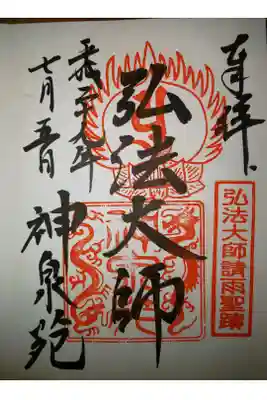 奉拝
弘法大師請雨聖蹟
弘法大師
神泉苑
平成二十九年
七月五日